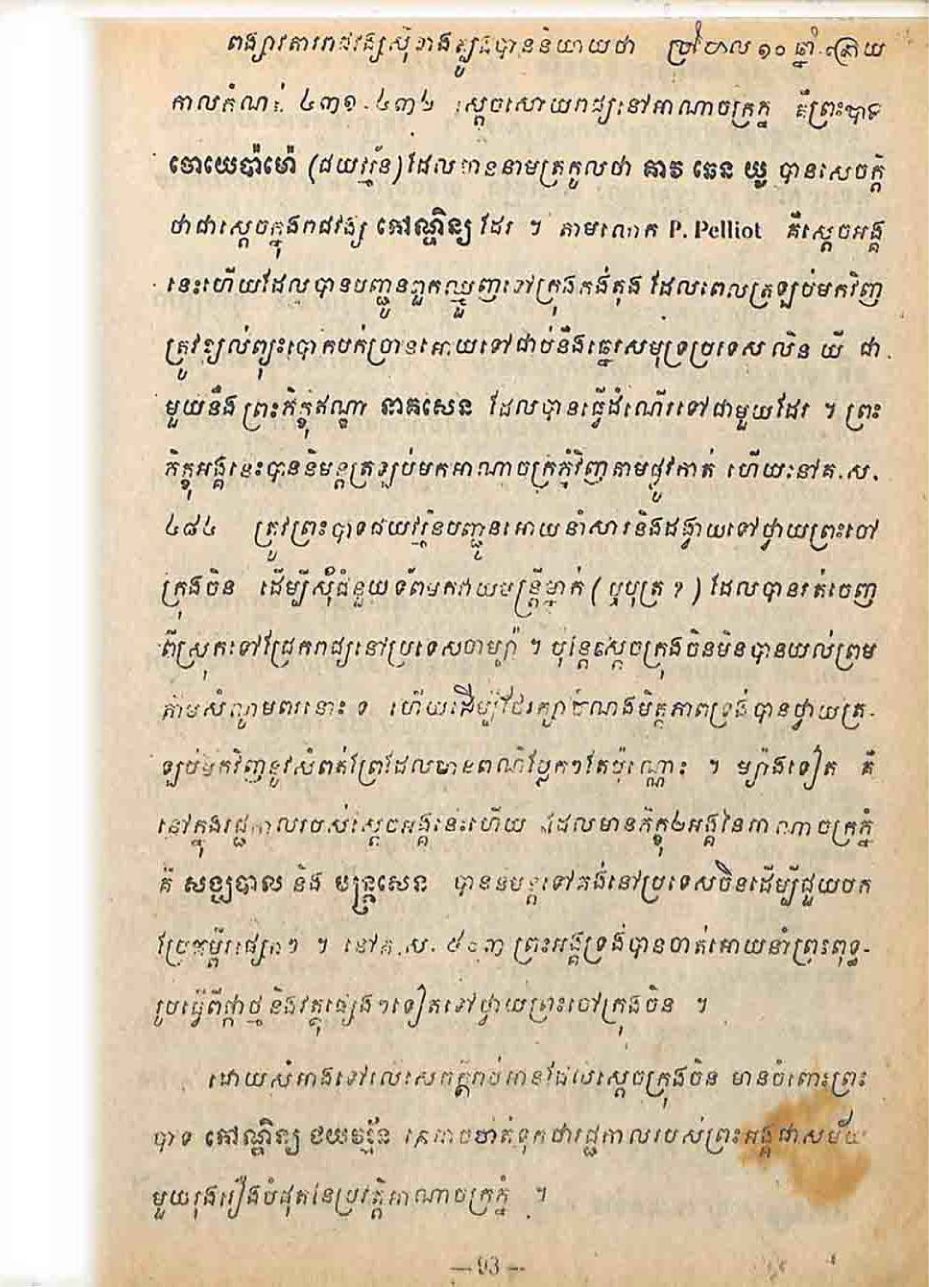 ពង្សាវតាររាជវង្សស៊ុខាងត្បូងបាននិយាយថា ប្រហែល ១០ ឆ្នាំ ក្រោយ
កាលកំណរ់ ៤៣១-៤៣៤ ស្តេចសោយរាជ្យនៅអាណាចក្រភ្នំ គឺព្រះបាទ
ចោយេប៉ាម៉ោ (ជយវរ្ម័ន) ដែលមាននាមត្រកូលថា គាវ ឆេន យូ បានសេចក្តី
ថាជាស្តេចក្នុងរាជវង្ស កៅណ្ឌិន្យ ដែរ ។ តាមលោក P. Pelliot គឺស្តេចអង្គ
នេះហើយដែលបានបញ្ជូនពួកឈ្មួញទៅក្រុងកង់តុង ដែលពេលត្រឡប់មកវិញ
ត្រូវខ្យល់ព្យុះបោកបក់ប្រានអោយទៅជាប់នឹងឆ្នេរសមុទ្រប្រទេស លិន យី ជា
មួយនឹង ព្រះភិក្ខុឥណ្ឌា នាគសេន ដែលបានធ្វើដំណើរទៅជាមួយដែរ ។ ព្រះ
ភិក្ខុអង្គនេះបាននិមន្តត្រឡប់មកអាណាចក្រភ្នំវិញតាមផ្លូវកាត់ ហើយនៅគ.ស.
៤៨៤ ត្រូវព្រះបាទជយវរ្ម័នបញ្ជូនអោយនាំសារនិងដង្វាយទៅថ្វាយព្រះចៅ
ក្រុងចិន ដើម្បីសុំជំនួយទ័ពមក​វាយមន្ត្រីម្នាក់ ( ឬបុត្រ ? ) ដែលបានរត់ចេញ
ពីស្រុកទៅជ្រែករាជ្យនៅប្រទេសចាម្ប៉ា ។ ប៉ុន្តែស្តេចក្រុងចិនមិនបានយល់ព្រម
តាមសំណូមពរនោះ ទ ហើយដើម្បីថែរក្សាចំណងមិត្តភាពទ្រង់បានថ្វាយត្រ-
ឡប់មកវិញនូវសំពត់ព្រែដែលមានពណ៌ប្លែកៗតែប៉ុណ្ណោះ ។ ម្យ៉ាងទៀត គឺ
នៅក្នុងរជ្ជកាលរបស់ស្តេចអង្គនេះហើយ ដែលមានភិក្ខុ២អង្គនៃអាណាចក្រភ្នំ
គឺ សង្ឃបាល និង មន្ត្រសេន បាននិមន្តទៅគង់នៅប្រទេសចិនដើម្បីជួយបក
ប្រែគម្ពីរផ្សេងៗ ។ នៅគ.ស. ៥០៣ ព្រះអង្គទ្រង់បានចាត់អោយនាំព្រះពុទ្ធ-
រូបធ្វើពីផ្កាថ្ម និងវត្ថុផ្សេងៗទៀតទៅថ្វាយព្រះចៅក្រុងចិន ។
ដោយសំអាងទៅលើសេចក្តីរាប់អានដែលស្តេចក្រុងចិន មានចំពោះព្រះ
បាទ កៅណ្ឌិន្យ ជយវរ្ម័ន គេអាចចាត់ទុកថារជ្ជកាលរបស់ព្រះអង្គជាសម័យ
មួយរុងរឿងបំផុតនៃប្រវត្តិអាណាចក្រភ្នំ ។
— 93 —